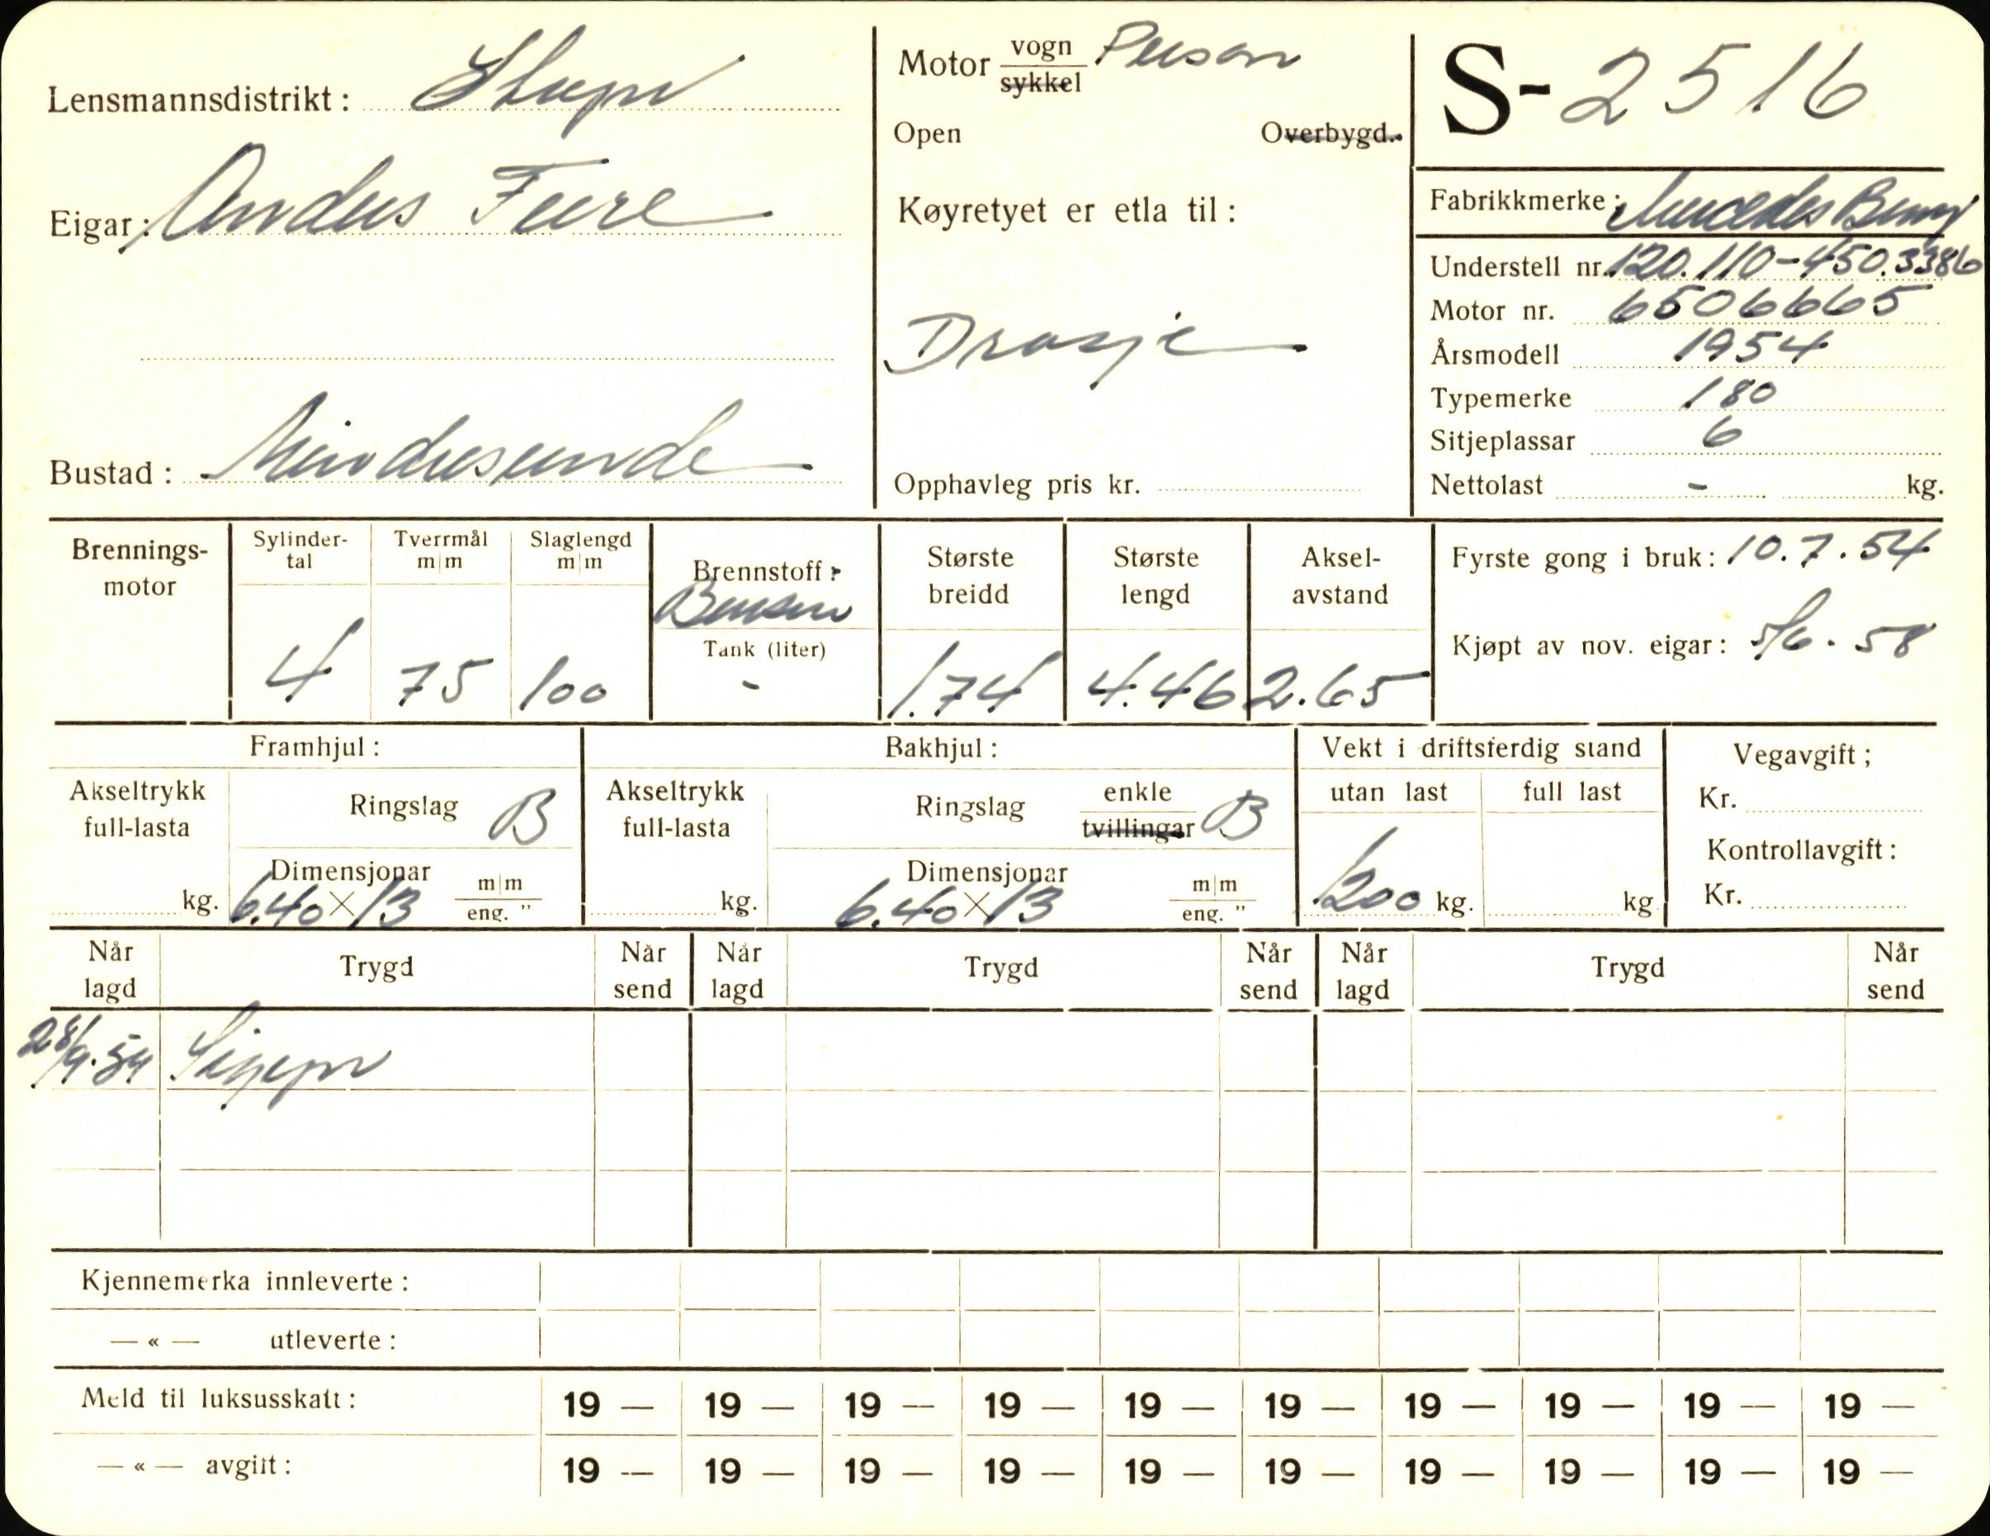 Lensmannsdistrikt: Stryn
Eigar: Anders Feire
Bustad: Mindresunde
Motor vogn Person
sykkel
Open Overbygd.
Køyretyet er etla til:
Drosje
Opphavleg pris kr.
S-2516
Fabrikkmerke: Mercedes Benz
Understell nr. 120.110-450.3386
Motor nr. 6506665
Årsmodell 1954
Typemerke 180
Sitjeplassar 6
Nettolast - kg.
Brennings-
motor
Sylinder-
tal
4
Tverrmål
m|m
75
Slaglengd
m|m
100
Brennstoff:
Bensin
Tank (liter)
-
Største
breidd
1.74
Største
lengd
4.46
Aksel-
avstand
2.65
Fyrste gong i bruk: 10.7.54
Kjøpt av nov. eigar: 5/6.58
Framhjul:
Akseltrykk
full-lasta
kg.
Ringslag B
Dimensjonar
6.40 × 13 m|m
eng. "
Bakhjul:
Akseltrykk
full-lasta
kg.
Ringslag enkle
tvillingar B
Dimensjonar
6.40 × 13 m|m
eng. "
Vekt i driftsferdig stand
utan last full last
1200 kg. kg
Vegavgift;
Kr.
Kontrollavgift:
Kr.
Når
lagd
Trygd
Når
send
Når
lagd
Trygd
Når
send
Når
lagd
Trygd
Når
send
28/9.54
Kjennemerka innleverte:
— « — utleverte:
Meld til luksusskatt: 19 — 19 — 19 — 19 — 19 — 19 — 19 — 19 — 19 — 19 —
— « — avgift: 19 — 19 — 19 — 19 — 19 — 19 — 19 — 19 — 19 — 19 —